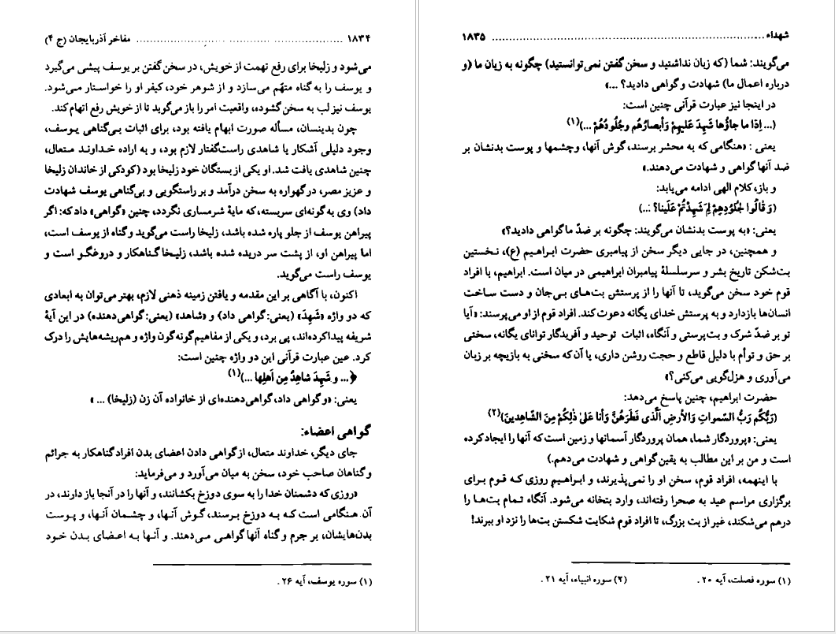 ۱۸۳۴ ........ مفاخر آذربایجان (ج ۴)
می‌شود و زلیخا برای رفع تهمت از خویش، در سخن گفتن بر یوسف پیشی می‌گیرد
و یوسف را به گناه متهّم می‌سازد و از شوهر خود، کیفر او را خواستار می‌شود.
یوسف نیز لب به سخن گشوده، واقعیت امر را باز می‌گوید تا از خویش رفع اتهام کند.
چون بدینسان، مسأله صورت ابهام یافته بود، برای اثبات بی‌گناهی یوسف،
وجود دلیلی آشکار یا شاهدی راست‌گفتار لازم بود، و به اراده خداوند متعال،
چنین شاهدی یافت شد. او یکی از بستگان خود زلیخا بود (کودکی از خاندان زلیخا
و عزیز مصر، در گهواره به سخن درآمد و بر راستگویی و بی‌گناهی یوسف شهادت
داد) وی به گونه‌ای سربسته، که مایهٔ شرمساری نگردد، چنین «گواهی» داد که: اگر
پیراهن یوسف از جلو پاره شده باشد، زلیخا راست می‌گوید و گناه از یوسف است،
اما پیراهن او، از پشت سر دریده شده باشد، زلیخا گناهکار و دروغگو است و
یوسف راست می‌گوید.
اکنون، با آگاهی بر این مقدمه و یافتن زمینه ذهنی لازم، بهتر می‌توان به ابعادی
که دو واژه (شَهِدَ) (یعنی: گواهی داد) و «شاهد» (یعنی: گواهی‌دهنده) در این آیهٔ
شریفه پیدا کرده‌اند، پی برد، و یکی از مفاهیم گونه‌گون واژه و هم‌ریشه‌هایش را درک
کرد. عین عبارت قرآنی این دو واژه چنین است:
﴿... و شَهِدَ شاهِدٌ مِن اَهلِها ...)(۱)
یعنی: «و گواهی داد، گواهی‌دهنده‌ای از خانواده آن زن (زلیخا) ... »
گواهی اعضاء:
جای دیگر، خداوند متعال، از گواهی دادن اعضای بدن افراد گناهکار به جرائم
و گناهان صاحب خود، سخن به میان می‌آورد و می‌فرماید:
«روزی که دشمنان خدا را به سوی دوزخ بکشانند، و آنها را در آنجا باز دارند، در
آن هنگامی است که به دوزخ برسند، گوش آنها، و چشمان آنها، و پوست
بدن‌هایشان، بر جرم و گناه آنها گواهی می‌دهند. و آنها به اعضای بدن خود
(۱) سوره یوسف، آیه ۲۶.
شهداء ........ ۱۸۳۵
می‌گویند: شما (که زبان نداشتید و سخن گفتن نمی‌توانستید) چگونه به زیان ما (و
درباره اعمال ما) شهادت و گواهی دادید؟ ...»
در اینجا نیز عبارت قرآنی چنین است:
(... اِذا ما جاؤُها شَهِدَ عَلَیهِمْ وَأبصارُهُم وجُلُودُهُمْ ...)(۱)
یعنی : «هنگامی که به محشر برسند، گوش آنها، وچشمها و پوست بدنشان بر
ضد آنها گواهی و شهادت می‌دهند.»
و باز، کلام الهی ادامه می‌یابد:
(وَ قالُوا لِجُلُودِهِمْ لِمَ شَهِدْتُمْ عَلَینا؟ ...)
یعنی: «به پوست بدنشان می‌گویند: چگونه بر ضدّ ما گواهی دادید؟»
و همچنین، در جایی دیگر سخن از پیامبری حضرت ابراهیم (ع)، نخستین
بت‌شکن تاریخ بشر و سرسلسلهٔ پیامبران ابراهیمی در میان است. ابراهیم، با افراد
قوم خود سخن می‌گوید، تا آنها را از پرستش بت‌های بی‌جان و دست ساخت
انسان‌ها بازدارد و به پرستش خدای یگانه دعوت کند. افراد قوم از او می‌پرسند: «آیا
تو بر ضدّ شرک و بت‌پرستی و آنگاه، اثبات توحید و آفریدگار توانای یگانه، سخنی
بر حق و توأم با دلیل قاطع و حجت روشن داری، یا آن که سخنی به بازیچه بر زبان
می‌آوری و هزل‌گویی می‌کنی؟»
حضرت ابراهیم، چنین پاسخ می‌دهد:
(رَبُّکُم رَبُّ السَّمواتِ وَالأرضِ الَّذی فَطَرَهُنَّ وَأنا عَلیٰ ذلِکُمْ مِنَ الشّاهِدینَ)(۲)
یعنی: «پروردگار شما، همان پروردگار آسمانها و زمین است که آنها را ایجاد کرده
است و من بر این مطالب به یقین گواهی و شهادت می‌دهم.)
با اینهمه، افراد قوم، سخن او را نمی‌پذیرند، و ابراهیم روزی که قوم برای
برگزاری مراسم عید به صحرا رفته‌اند، وارد بتخانه می‌شود. آنگاه تمام بت‌ها را
درهم می‌شکند، غیر از بت بزرگ، تا افراد قوم شکایت شکستن بت‌ها را نزد او ببرند!
(۱) سوره فصلت، آیه ۲۰. (۲) سوره انبیاء، آیه ۲۱.